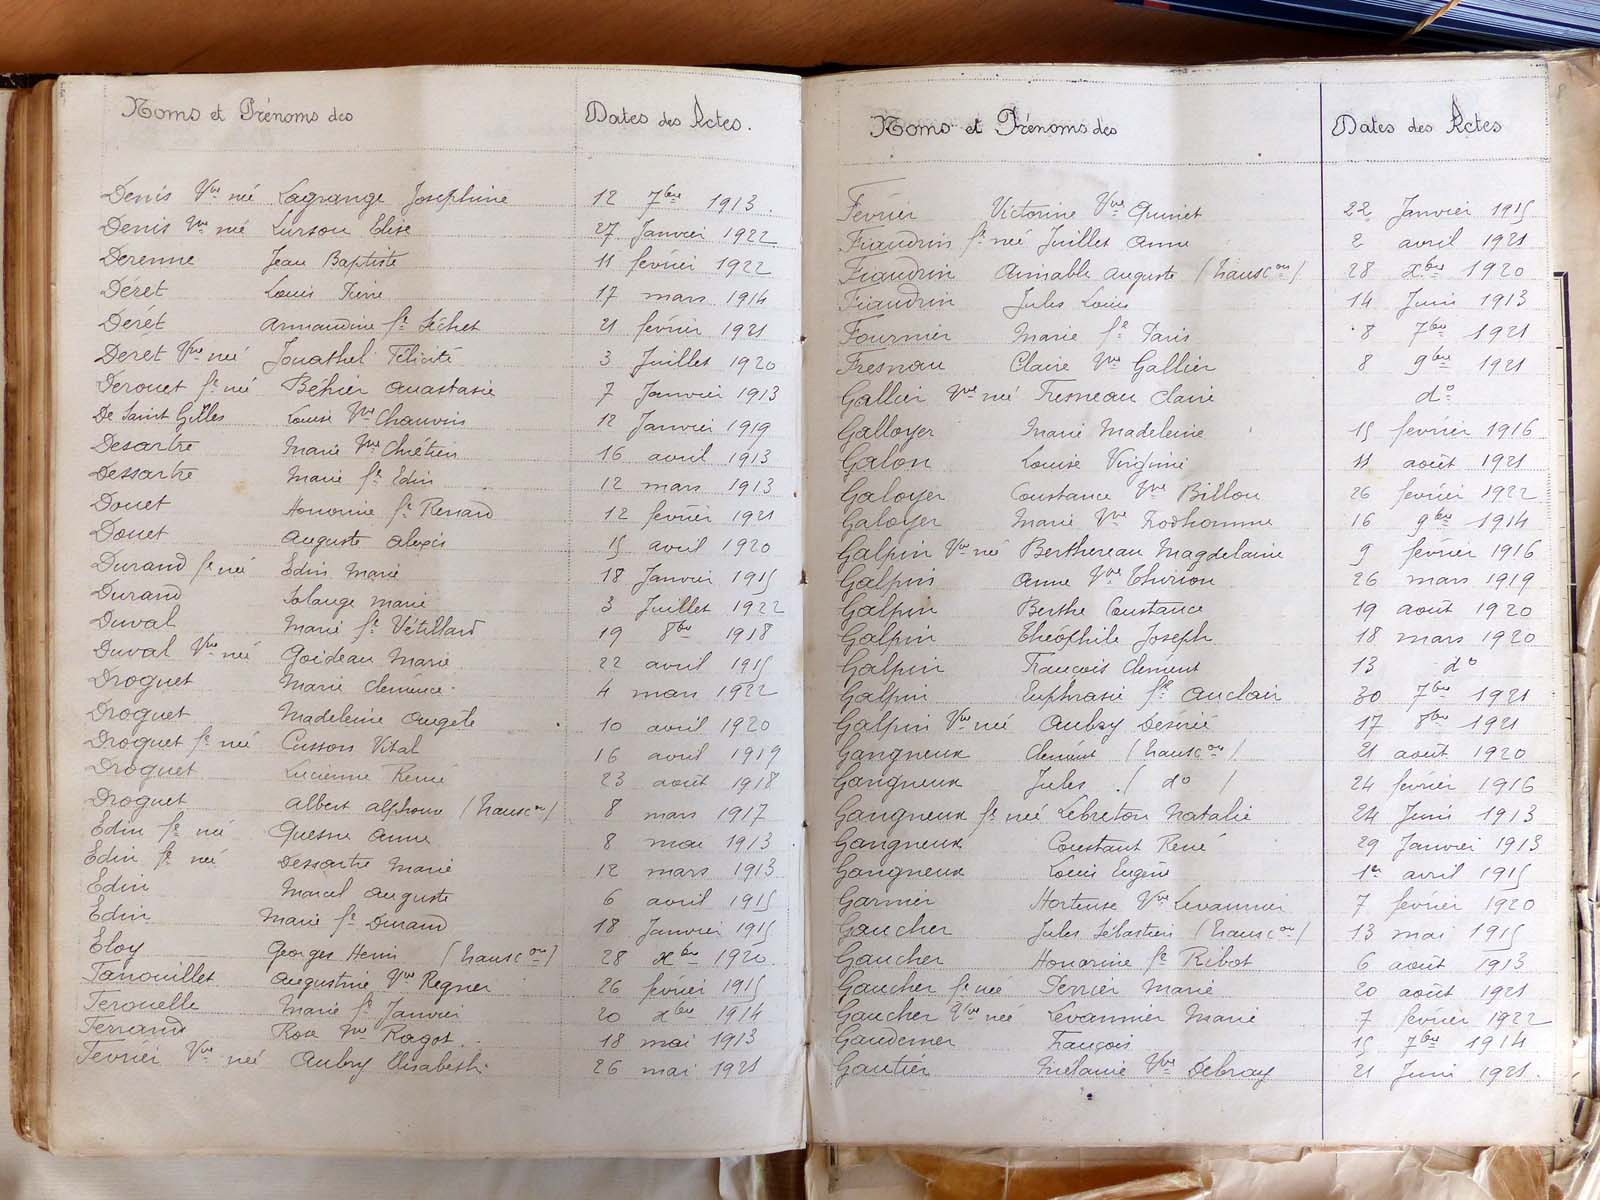 Noms et Prénoms des Dates des Actes.
Denis Vve née Lagrange Joséphine 12 7bre 1913
Denis Vve née Lurson Elise 27 Janvier 1922
Derenne Jean Baptiste 11 février 1922
Déret Louis 17 mars 1914
Derét Armandine fe Séchet 21 février 1921
Derét Vve née Félicité 3 Juillet 1920
Derouet fe née Béhier Anastasie 7 Janvier 1913
De Saint Gilles Louise Vve Chauvin 12 Janvier 1919
Desartre Marie Vve Chrétien 16 avril 1913
Dessartre Marie fe Edin 12 mars 1913
Douet Honorine fe Renard 12 février 1921
Douet Auguste Alexis 15 avril 1920
Durand fe née Edin Marie 18 Janvier 1915
Durand Solange Marie 3 Juillet 1922
Duval Marie fe Vétillard 19 8bre 1918
Duval Vve née Goideau Marie 22 avril 1915
Droguet Marie Clémence 4 mars 1922
Droguet Madeleine Angèle 10 avril 1920
Droguet fe née Cusson Vital 16 avril 1919
Droguet Lucienne Renée 23 août 1918
Droguet Albert Alphonse (transcon) 8 mars 1917
Edin fe née Quesne Anne 8 mai 1913
Edin fe née Dessartre Marie 12 mars 1913
Edin Marcel Auguste 6 avril 1915
Edin Marie fe Durand 18 Janvier 1915
Eloy Georges Henri (transcon) 28 xbre 1920
Fanouillet Augustine Vve Regner 26 février 1915
Ferouelle Marie fe Janvier 20 xbre 1914
Ferrand Rose Vve Ragot 18 mai 1913
Fevrier Vve née Aubry Elisabeth 26 mai 1921
Noms et Prénoms des Dates des Actes
Février Victorine Vve Quinet 22 Janvier 1915
Fiaudrin fe née Juillet Anne 2 avril 1921
Fiaudrin Aimable Auguste (transcon) 28 xbre 1920
Fiaudrin Jules Louis 14 Juin 1913
Fournier Marie fe Paris 8 7bre 1921
Fresnau Claire Vve Gallier 8 9bre 1921
Gallier Vve née Fresneau Claire do
Galloyer Marie Madeleine 15 février 1916
Galon Louise Virginie 11 août 1921
Galoyer Constance Vve Billon 26 février 1922
Galoyer Marie Vve Prodhomme 16 9bre 1914
Galpin Vve née Berthereau Magdelaine 9 février 1916
Galpin Anne Vve Thirion 26 mars 1919
Galpin Berthe Constance 19 août 1920
Galpin Théophile Joseph 18 mars 1920
Galpin François Clément 13 do
Galpin Euphrasie fe Auclair 30 7bre 1921
Galpin Vve née Aubry Désirée 17 8bre 1921
Gangneux Clément (transcon) 21 août 1920
Gangneux Jules (do) 24 février 1916
Gangneux fe née Lebreton Natalie 24 Juin 1913
Gangneux Constant René 29 Janvier 1913
Gangneux Louis Eugène 1er avril 1915
Garnier Hortense Vve Levannier 7 février 1920
Gaucher Jules Sébastien (transcon) 13 mai 1915
Gaucher Honorine fe Ribot 6 août 1913
Gaucher fe née Terrier Marie 20 août 1921
Gaucher Vve née Levannier Marie 7 février 1922
Gaudemer François 15 7bre 1914
Gautier Mélanie Vve Debray 21 Juin 1921